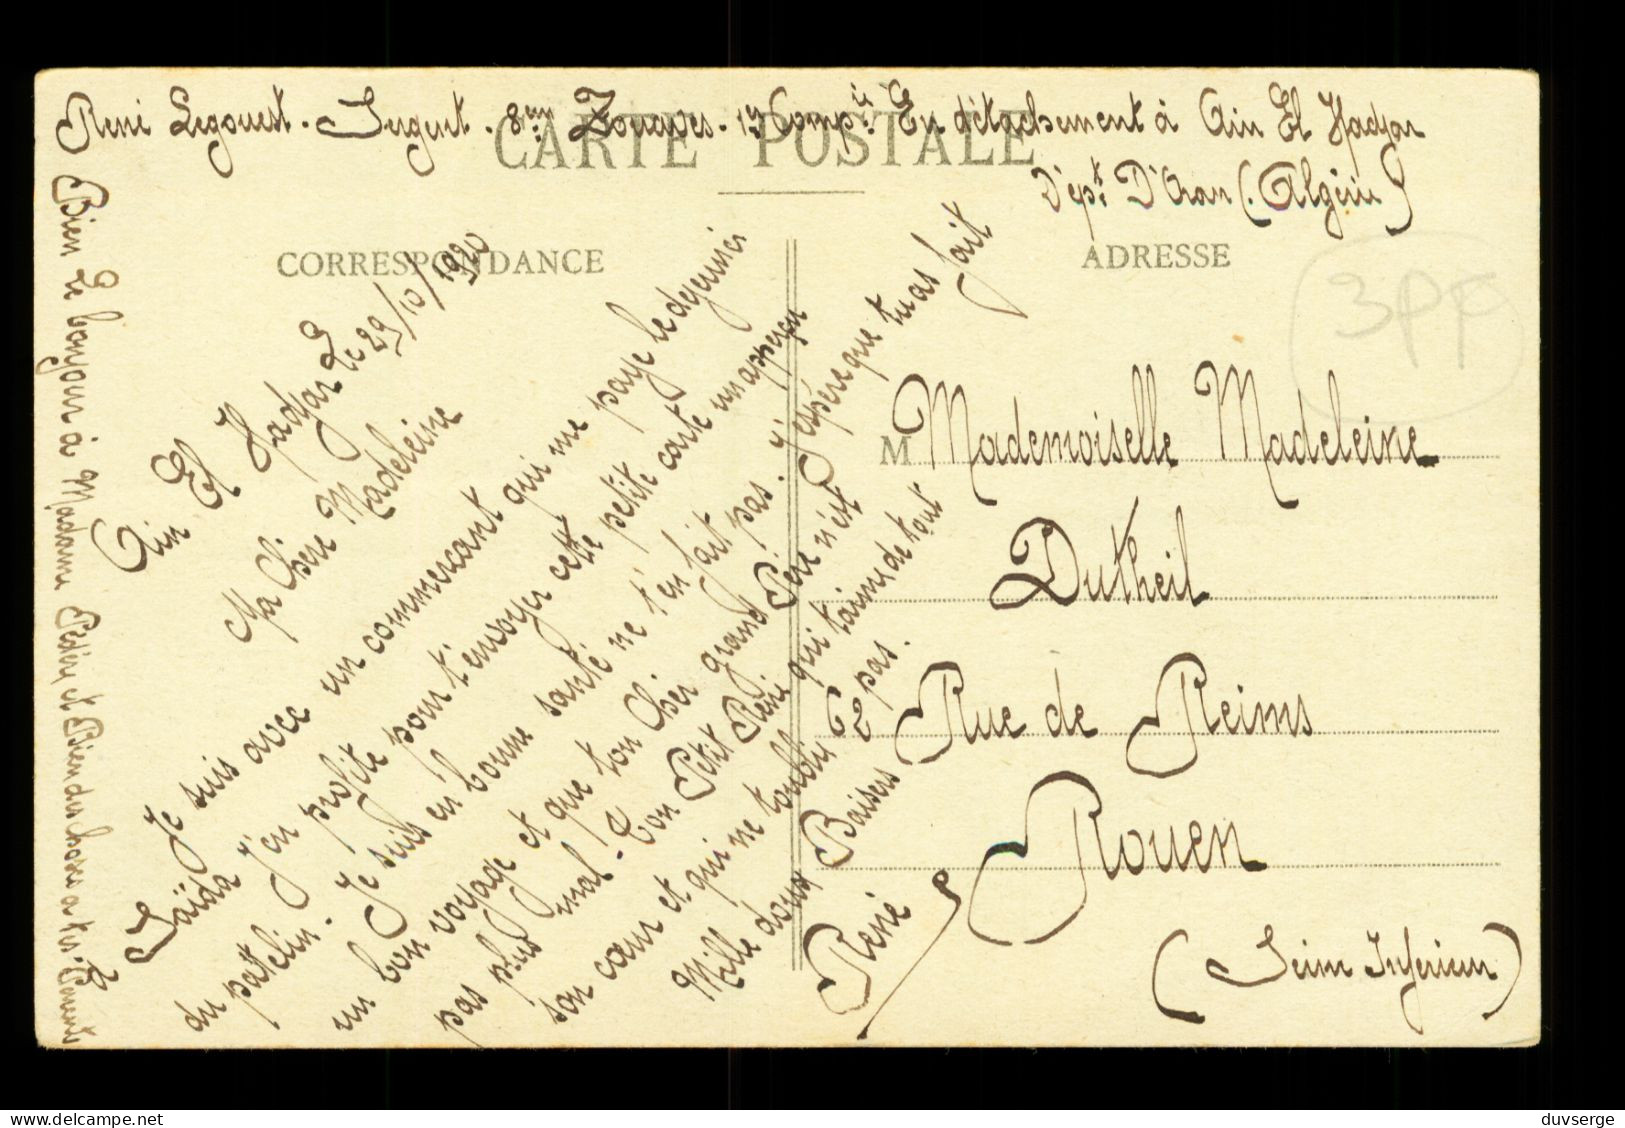 René Legouest. Sergent. 8em Zouaves. 19 Compie En détachement à Ain El Hadjar
Dépt D'Oran (Algérie)
CARTE POSTALE
CORRESPONDANCE
ADRESSE
3PF
Ain El Hadjar Le 29/10/1920
Ma Chère Madeleine
Je suis avec un commerçant qui me paye le déjeuner
à Saïda J'en profite pour t'envoyer cette petite carte un apperçu
du patelin. Je suis en bonne santé ne t'en fait pas. J'espère que tu as fait
un bon voyage et que ton Cher grand Père n'est
pas plus mal. Ton Petit René qui t'aime de tout
son cœur et qui ne t'oublie pas.
Mille doux Baisers
René
Bien Le bonjour à Madame Et Bien des choses a tes Parents
M Mademoiselle Madeleine
Dutheil
62 Rue de Reims
Rouen
(Seine Inferieure)
24/09/2024
duvserge